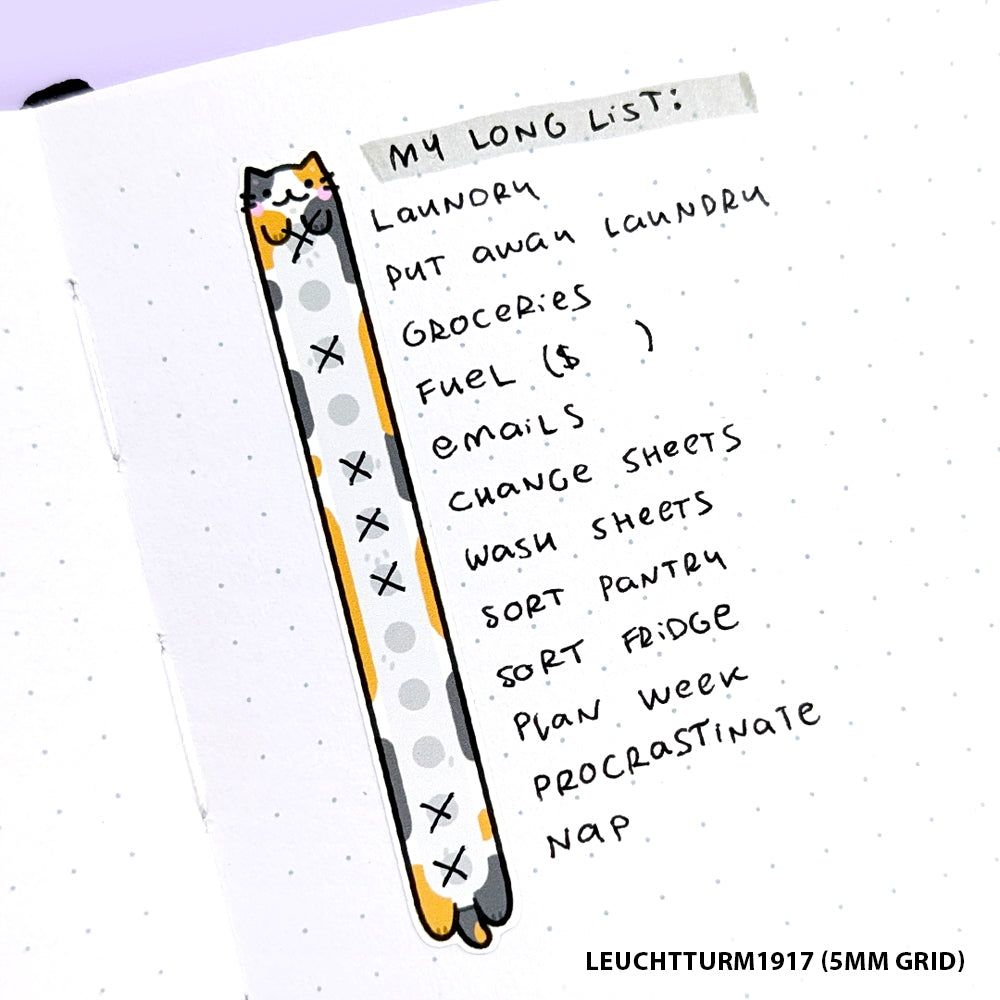 MY LONG LiST:
LauNDRY
PUT away LauNDRY
GROCERiES
FueL ($ )
emaiLS
CHANGe SHeeTS
WASH SHeeTS
SORT PaNTRY
SORT FRiDGe
PLAN Week
PROCRaSTiNaTe
NaP
LEUCHTTURM1917 (5MM GRID)